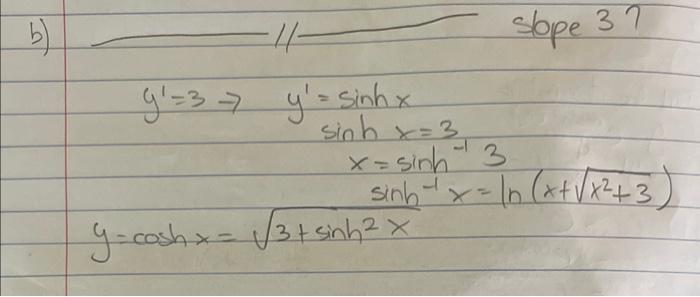 b) ———//——— slope 3?
y'=3 → y' = sinh x
sinh x = 3
x = sinh⁻¹ 3
sinh⁻¹ x = ln (x+√x²+3)
y = cosh x = √3+sinh² x